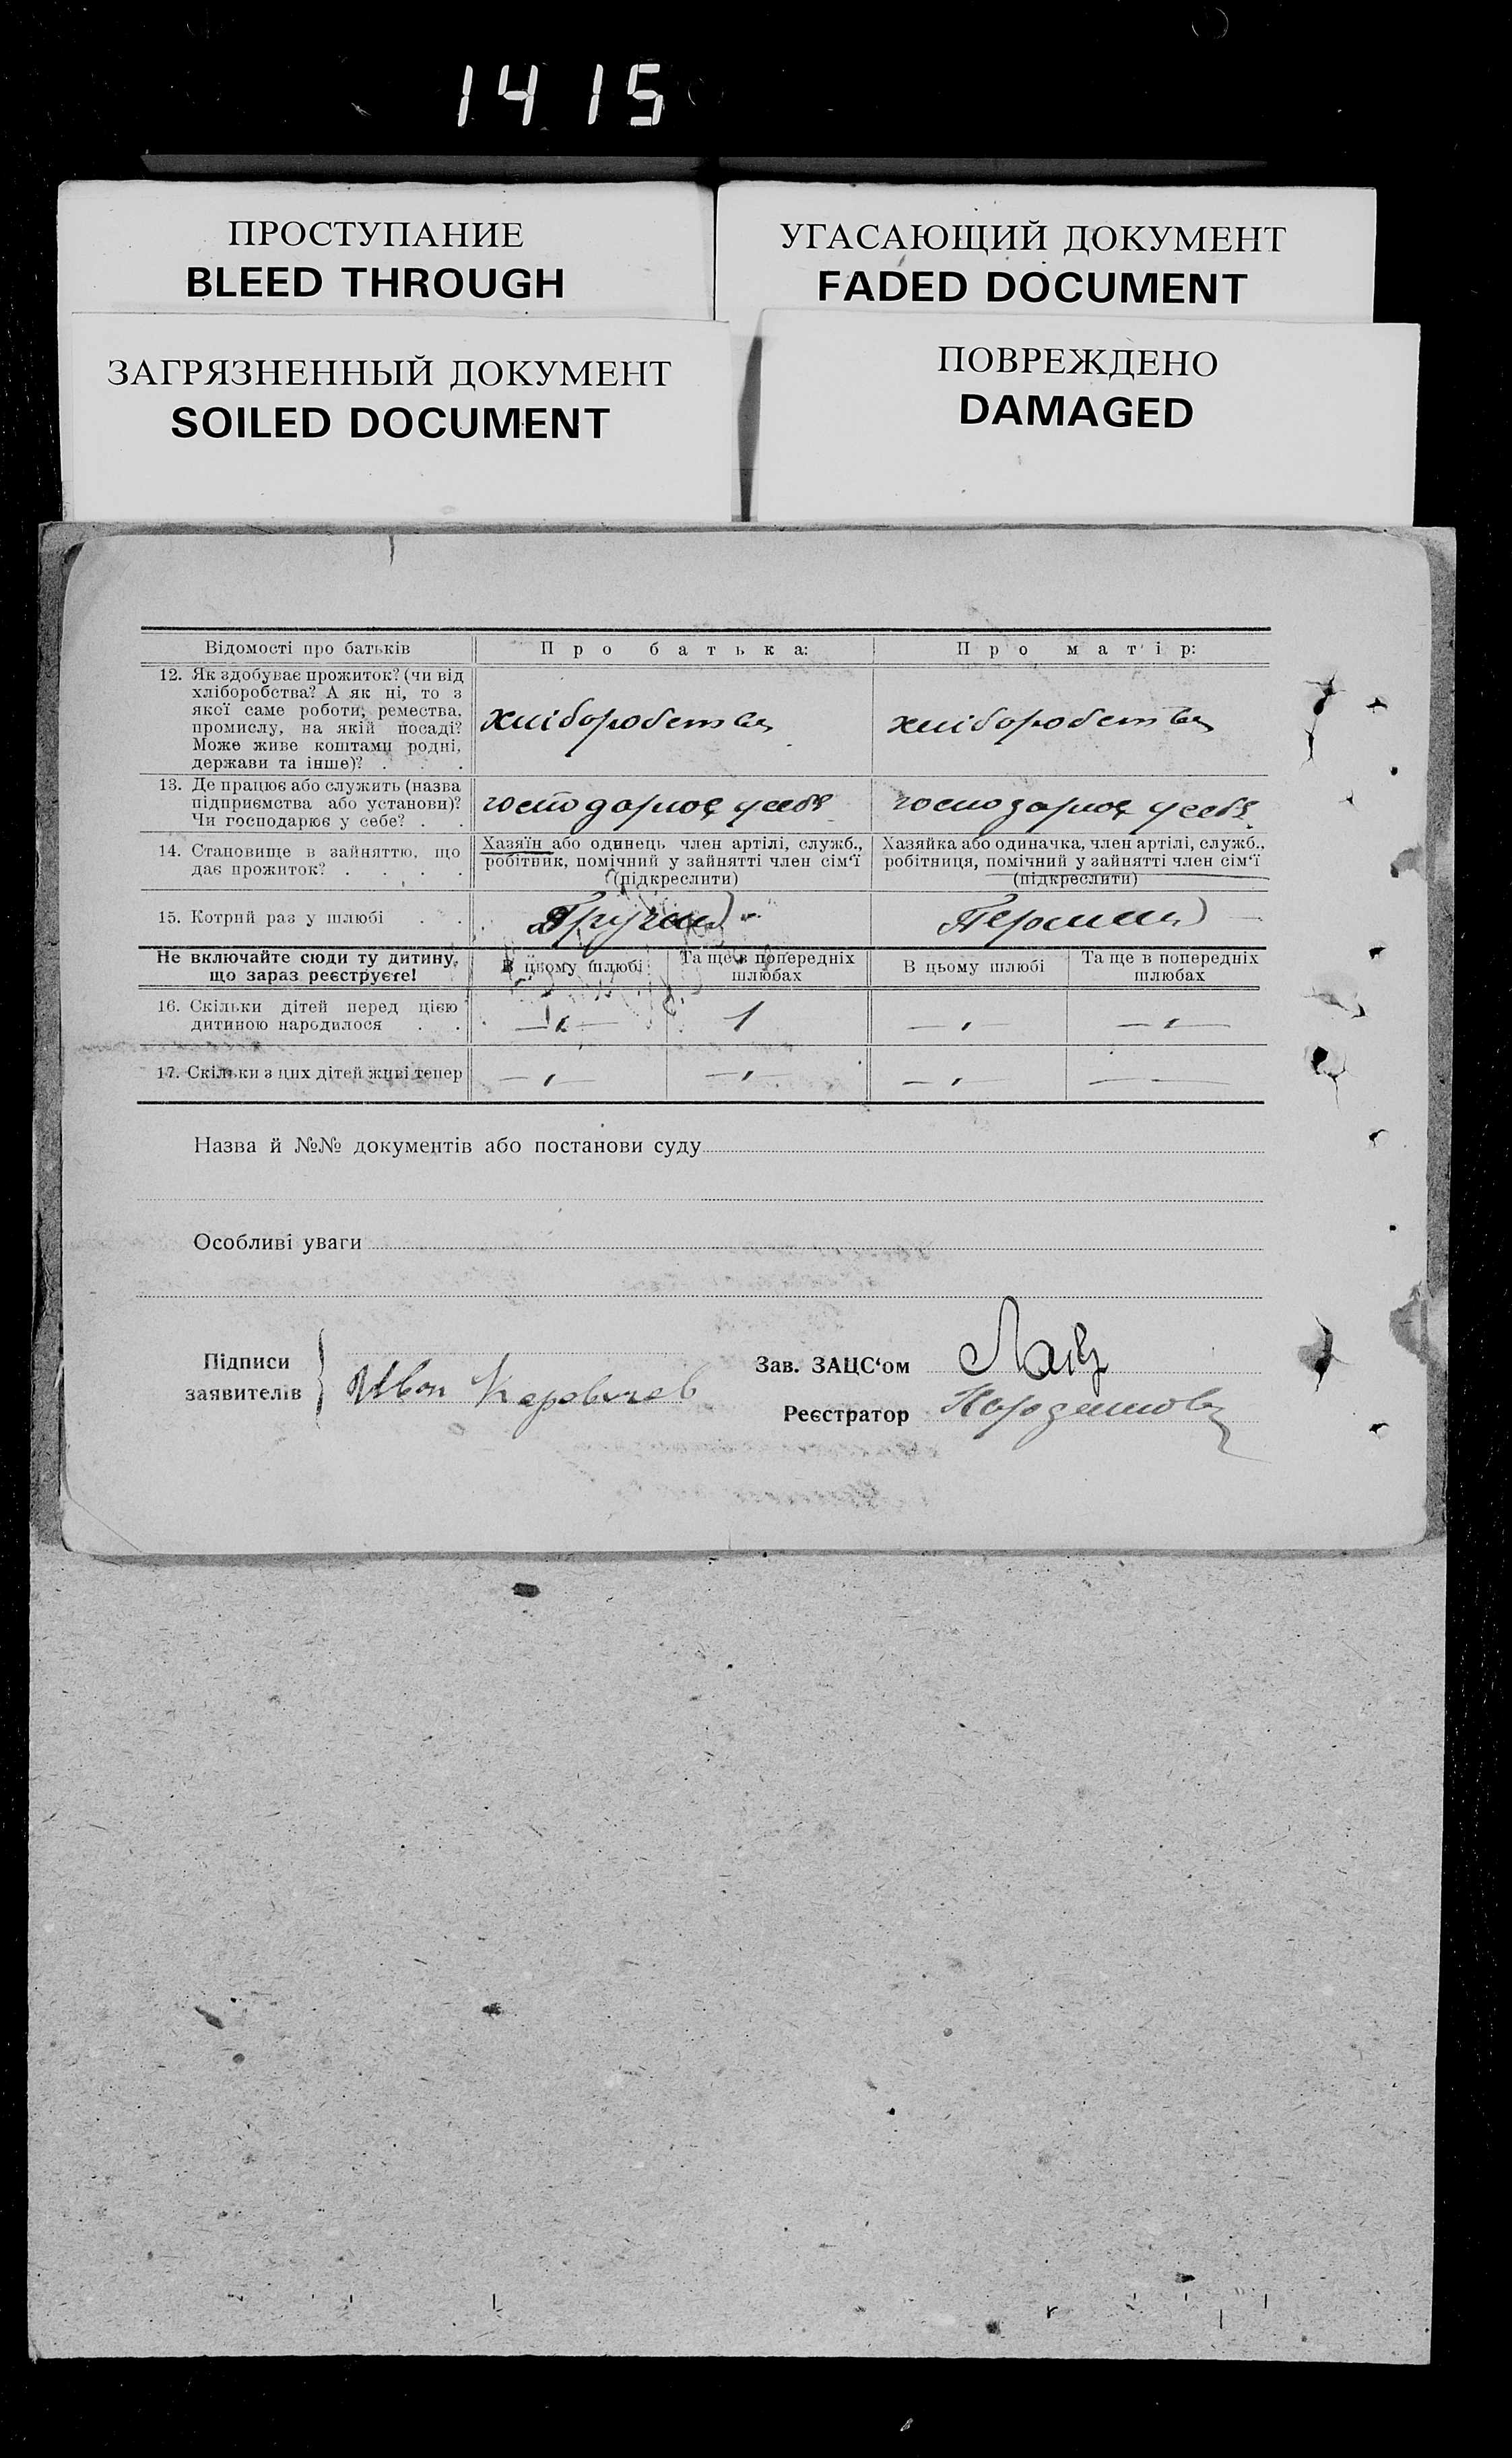 1415
ПРОСТУПАНИЕ
BLEED THROUGH
УГАСАЮЩИЙ ДОКУМЕНТ
FADED DOCUMENT
ЗАГРЯЗНЕННЫЙ ДОКУМЕНТ
SOILED DOCUMENT
ПОВРЕЖДЕНО
DAMAGED
Відомості про батьків
Про батька:
Про матір:
12. Як здобуває прожиток? (чи від
хліборобства? А як ні, то з
якої саме роботи, ремества,
промислу, на якій посаді?
Може живе коштами родні,
держави та інше)? . . .
хліборобства
хліборобства
13. Де працює або служить (назва
підприємства або установи)?
Чи господарює у себе? . .
господарює у себе
господарює у себе
14. Становище в зайняттю, що
дає прожиток? . . . .
Хазяїн або одинець член артілі, служб.,
робітник, помічний у зайнятті член сім'ї
(підкреслити)
Хазяйка або одиначка, член артілі, служб.,
робітниця, помічний у зайнятті член сім'ї
(підкреслити)
15. Котрий раз у шлюбі . .
Другий
Перший
Не включайте сюди ту дитину,
що зараз реєструєте!
В цьому шлюбі
Та ще в попередніх
шлюбах
В цьому шлюбі
Та ще в попередніх
шлюбах
16. Скільки дітей перед цією
дитиною народилося . .
1
17. Скільки з цих дітей живі тепер
Назва й №№ документів або постанови суду
Особливі уваги
Підписи
заявителів
Иван
Зав. ЗАЦС'ом
Реєстратор